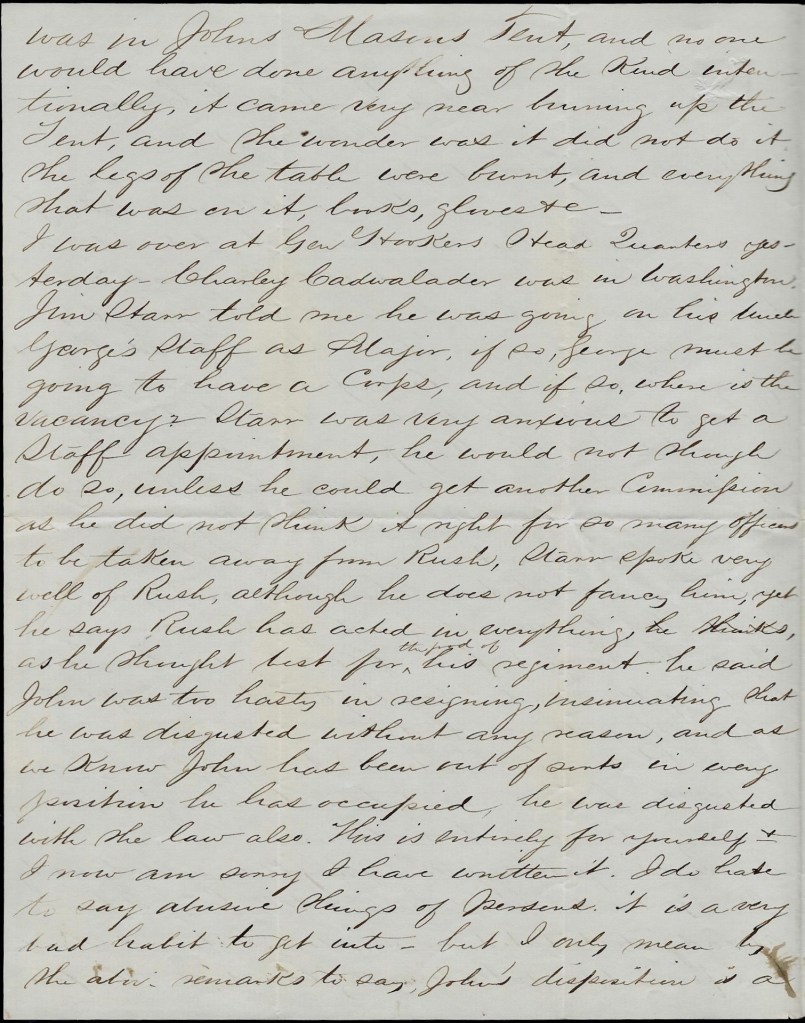 was in Johns & Masons Tent, and no one
would have done anything of the Kind inten-
tionally, it came very near burning up the
Tent, and the wonder was it did not do it
the legs of the table were burnt, and everything
that was on it, books, gloves &c -
I was over at Genl Hookers Head Quarters yes-
terday - Charley Cadwalader was in Washington.
Jim Starr told me he was going on his Uncle
George's Staff as Major, if so, George must be
going to have a Corps, and if so, where is the
vacancy? Starr was very anxious to get a
Staff appointment, he would not though
do so, unless he could get another Commission
as he did not think it right for so many officers
to be taken away from Rush, Starr spoke very
well of Rush, although he does not fancy him, yet
he says Rush has acted in everything, he thinks,
as he thought best for the good of his regiment. he said
John was too hasty in resigning, insinuating that
he was disgusted without any reason, and as
we Know John has been out of sorts in every
position he has occupied, he was disgusted
with the law also. This is entirely for yourself &
I now am sorry I have written it. I do hate
to say abusive things of persons. it is a very
bad habit to get into - but I only mean by
the abov. remarks to say, John's disposition is a